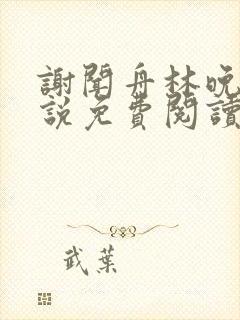 謝聞舟林晚
説免費閱讀
武葉